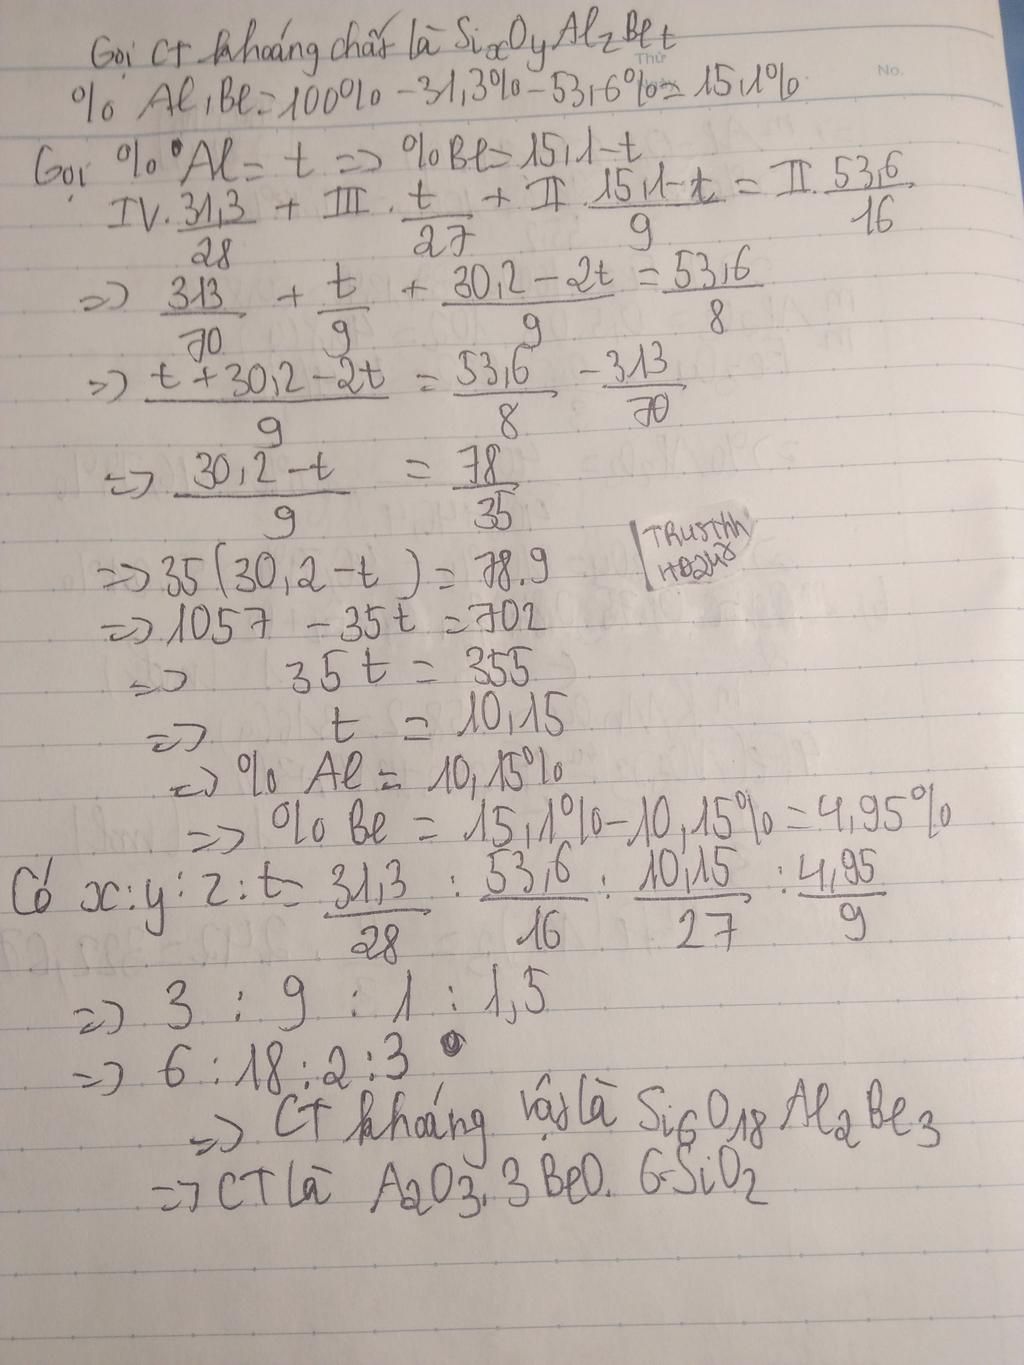 Gọi CT khoáng chất là SixOyAlzBet
Thứ
Ngày
No.
% Al,Be = 100% - 31,3% - 53,6% = 15,1%
Gọi % Al = t => %Be = 15,1-t
IV. 31,3/28 + III. t/27 + II. 15,1-t/9 = II. 53,6/16
=> 313/70 + t/9 + 30,2-2t/9 = 53,6/8
=> t+30,2-2t/9 = 53,6/8 - 313/70
=> 30,2-t/9 = 78/35
=> 35(30,2-t) = 78.9
TRUSThh
=> 1057 - 35t = 702
=> 35t = 355
=> t = 10,15
=> % Al = 10,15%
=> % Be = 15,1% - 10,15% = 4,95%
Có x:y:z:t = 31,3/28 : 53,6/16 : 10,15/27 : 4,95/9
=> 3 : 9 : 1 : 1,5
=> 6 : 18 : 2 : 3
=> CT khoáng vật là Si6O18Al2Be3
=> CT là A2O3. 3BeO. 6SiO2